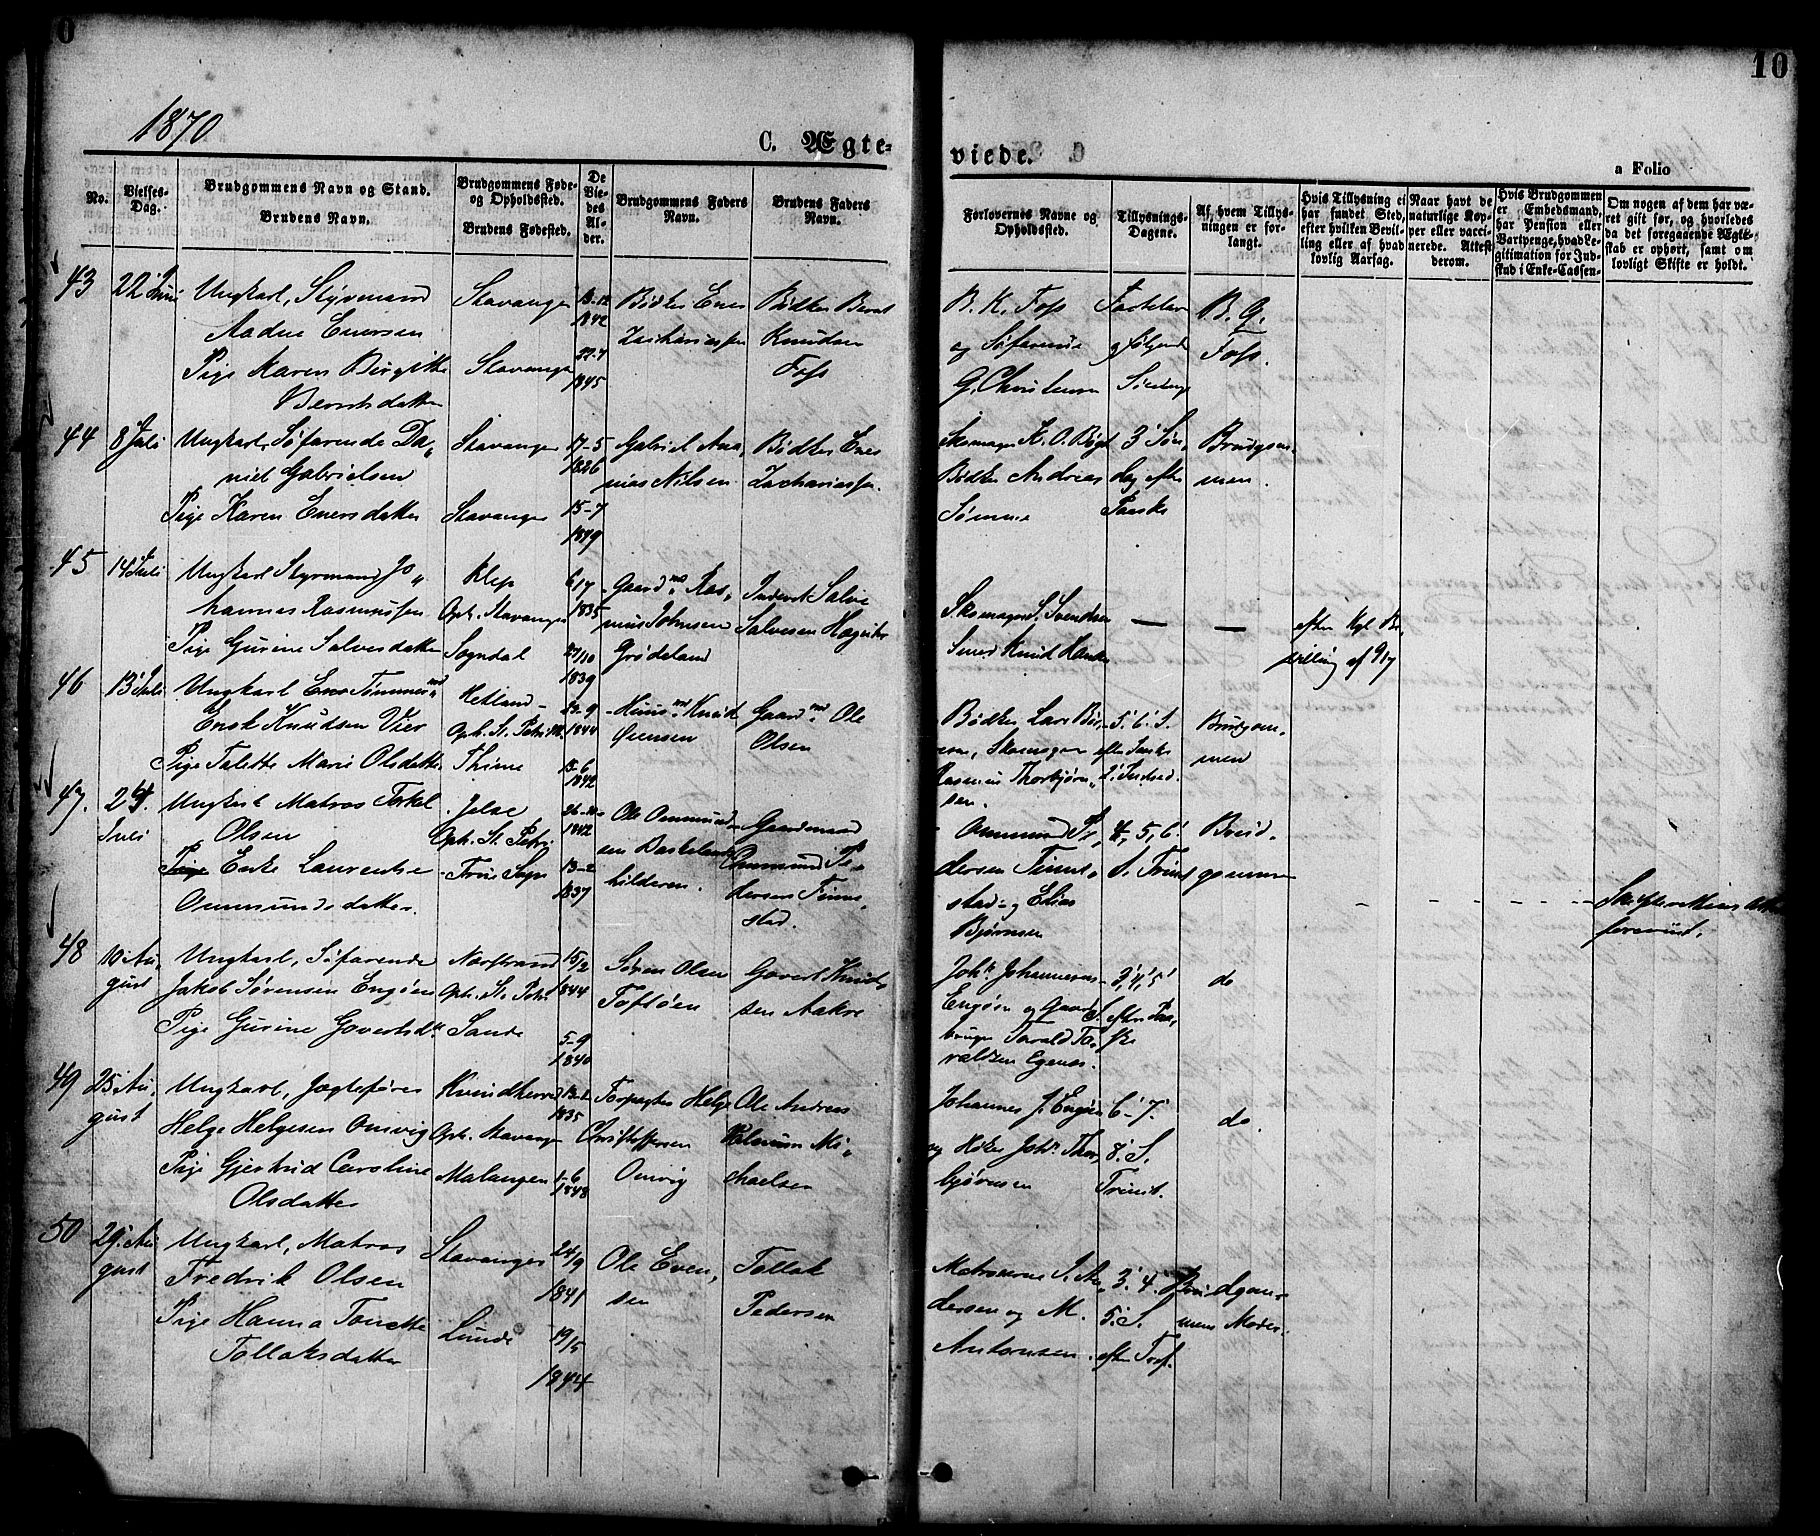 10
1870
C. Ægteviede.
a Folio
No.
Vielses-Dag.
Brudgommens Navn og Stand.
Brudens Navn.
Brudgommens Føde- og Opholdssted.
Brudens Fødested.
De Viedes Alder.
Brudgommens Faders Navn.
Brudens Faders Navn.
Forlovernes Navne og Opholdssted.
Tillysnings-Dagene.
Af hvem Tillysningen er forlangt.
Hvis Tillysning ei har fundet Sted, efter hvilken Bevilling eller af hvad lovlig Aarsag.
Naar havt de naturlige Kopper eller vaccinerede. Attest derom.
Hvis Brudgommen er Embedsmand, har Pension eller Vartpenge, hvad Legitimation for Indskud i Enke-Cassen
Om nogen af dem har været gift før, og hvorledes da det foregaaende Ægteskab er ophørt, samt om lovligt Skifte er holdt.
43
22 Juni
Ungkarl, Styrmand
Aadne Enersen
Pige Karen Birgitte
Berntsdatter
Stavanger
Stavanger
13-12
1842
22-7
1845
Bødker Ener
Zachariassen
Bødker Bernt
Knudsen
Foss
B. K. Foss
og Søfarende
G. Christensen
B. G.
Foss.
44
8 Juli
Ungkarl, Søfarende Da„
niel Gabrielsen
Pige Karen Enersdatter
Stavanger
Stavanger
17-5
1826
15-7
1849
Gabriel Ana„
nias Nilsen
Bødker Ener
Zachariassen
Skomager K. O. Bøgh
Bødker Andreas
Sømme
3' Søn„
dag efter
Paaske
Brudgom„
men.
45
14 Juli
Ungkarl Styrmand Jo„
hannes Rasmussen
Pige Gurine Salvesdatter
Klep
Oph. Stavanger
Sogndal
6/7
1835
27/10
1839
Gaardmd Ras„
mus Johnsen
Grødeland
Inderst Salve
Salvesen
Skomager S. Svendsen
Knud
—
—
efter Kgl. Be„
villing af 9/7
46
13 Juli
Ungkarl
Knudsen Vier
Pige Talette Marie Olsdatter
Hetland
Oph. St. Petri
Thime
22-9
1844
13-6
1842
Husmd Knud
Gaardmd Ole
Olsen
Bødker Lars
Skomager
Rasmus Thorbjørn„
sen.
5' 6' S.
Brudgom„
men
47.
24.
Juli
Ungkarl Matros Torkel
Olsen
Pige Enke Laurentse
Ommundsdatter.
Jelse
Oph. St. Petri
Frue Sogn
26-10
1842
13-2
1837
Ole Ommund„
sen
Gaardmand
Ommund Pe„
dersen Finne„
stad.
Ommund Pe„
dersen Finne„
stad og Elias
Bjørnsen
4', 5', 6'
S. Trinit
Brud„
gommen
- - - - -
48
10 Au„
gust
Ungkarl, Søfarende
Jakob Sørensen Engøen
Pige Gurine Govertsdtr
Narstrand
Oph. St. Petri
Sande
15/2
1844
5-9
1840
Søren Olsen
Toftøen
Govert Knud„
sen Aakre
Johs Johannesen
Engøen og
Tarald Ta„
raldsen Egenes.
3', 4', 5'
do
49
25 Au„
gust
Ungkarl, Jægtefører
Helge Helgesen Omvig
Pige Gjertrud Caroline
Olsdatter
Kvindherred
Oph. Stavanger
Malangen
1835
1-6
1848
Forpagter Helge
Christoffersen
Omvig
Ole Andreas
Mi„
chaelsen
Johannes J. Engøen
og Høker Johs Thor„
bjørnsen
6'-7'.
8' S.
Trinit.
do.
50
29. Au„
gust
Ungkarl, Matros
Fredrik Olsen
Pige Hanna Tonette
Tollaksdatter
Stavanger
Lunde
24/9
1841
19/5
1844
Ole Even„
sen
Tollak
Pedersen
Matroserne S. An„
dersen og M.
Antonsen.
3' 4.
5' S.
efter Tref.
Brudgom„
mens Moder.